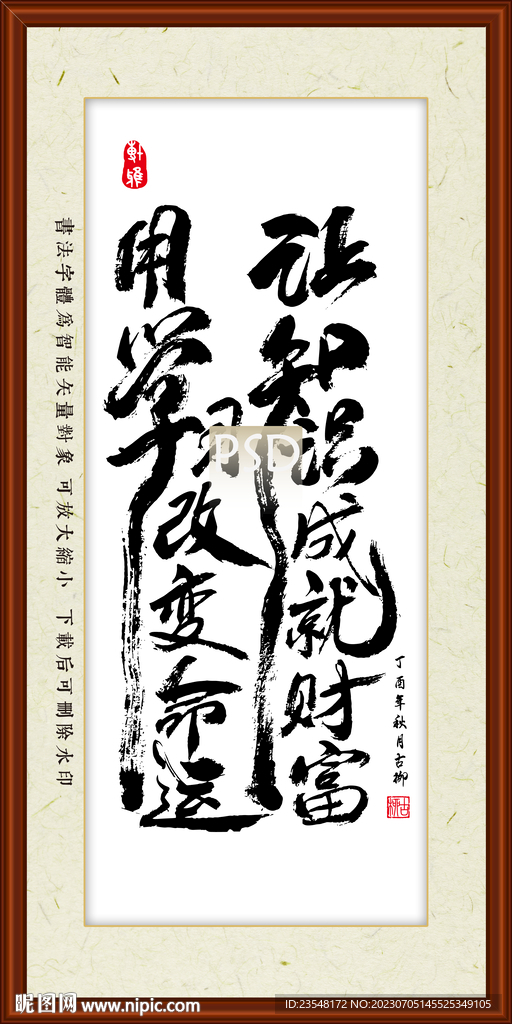 让知识成就财富
用学习改变命运
丁酉年秋月古柳
古柳
軒雅
書法字體為智能矢量對象 可放大縮小 下載后可刪除水印
PSD
昵图网 www.nipic.com
ID:23548172 NO:20230705145525349105